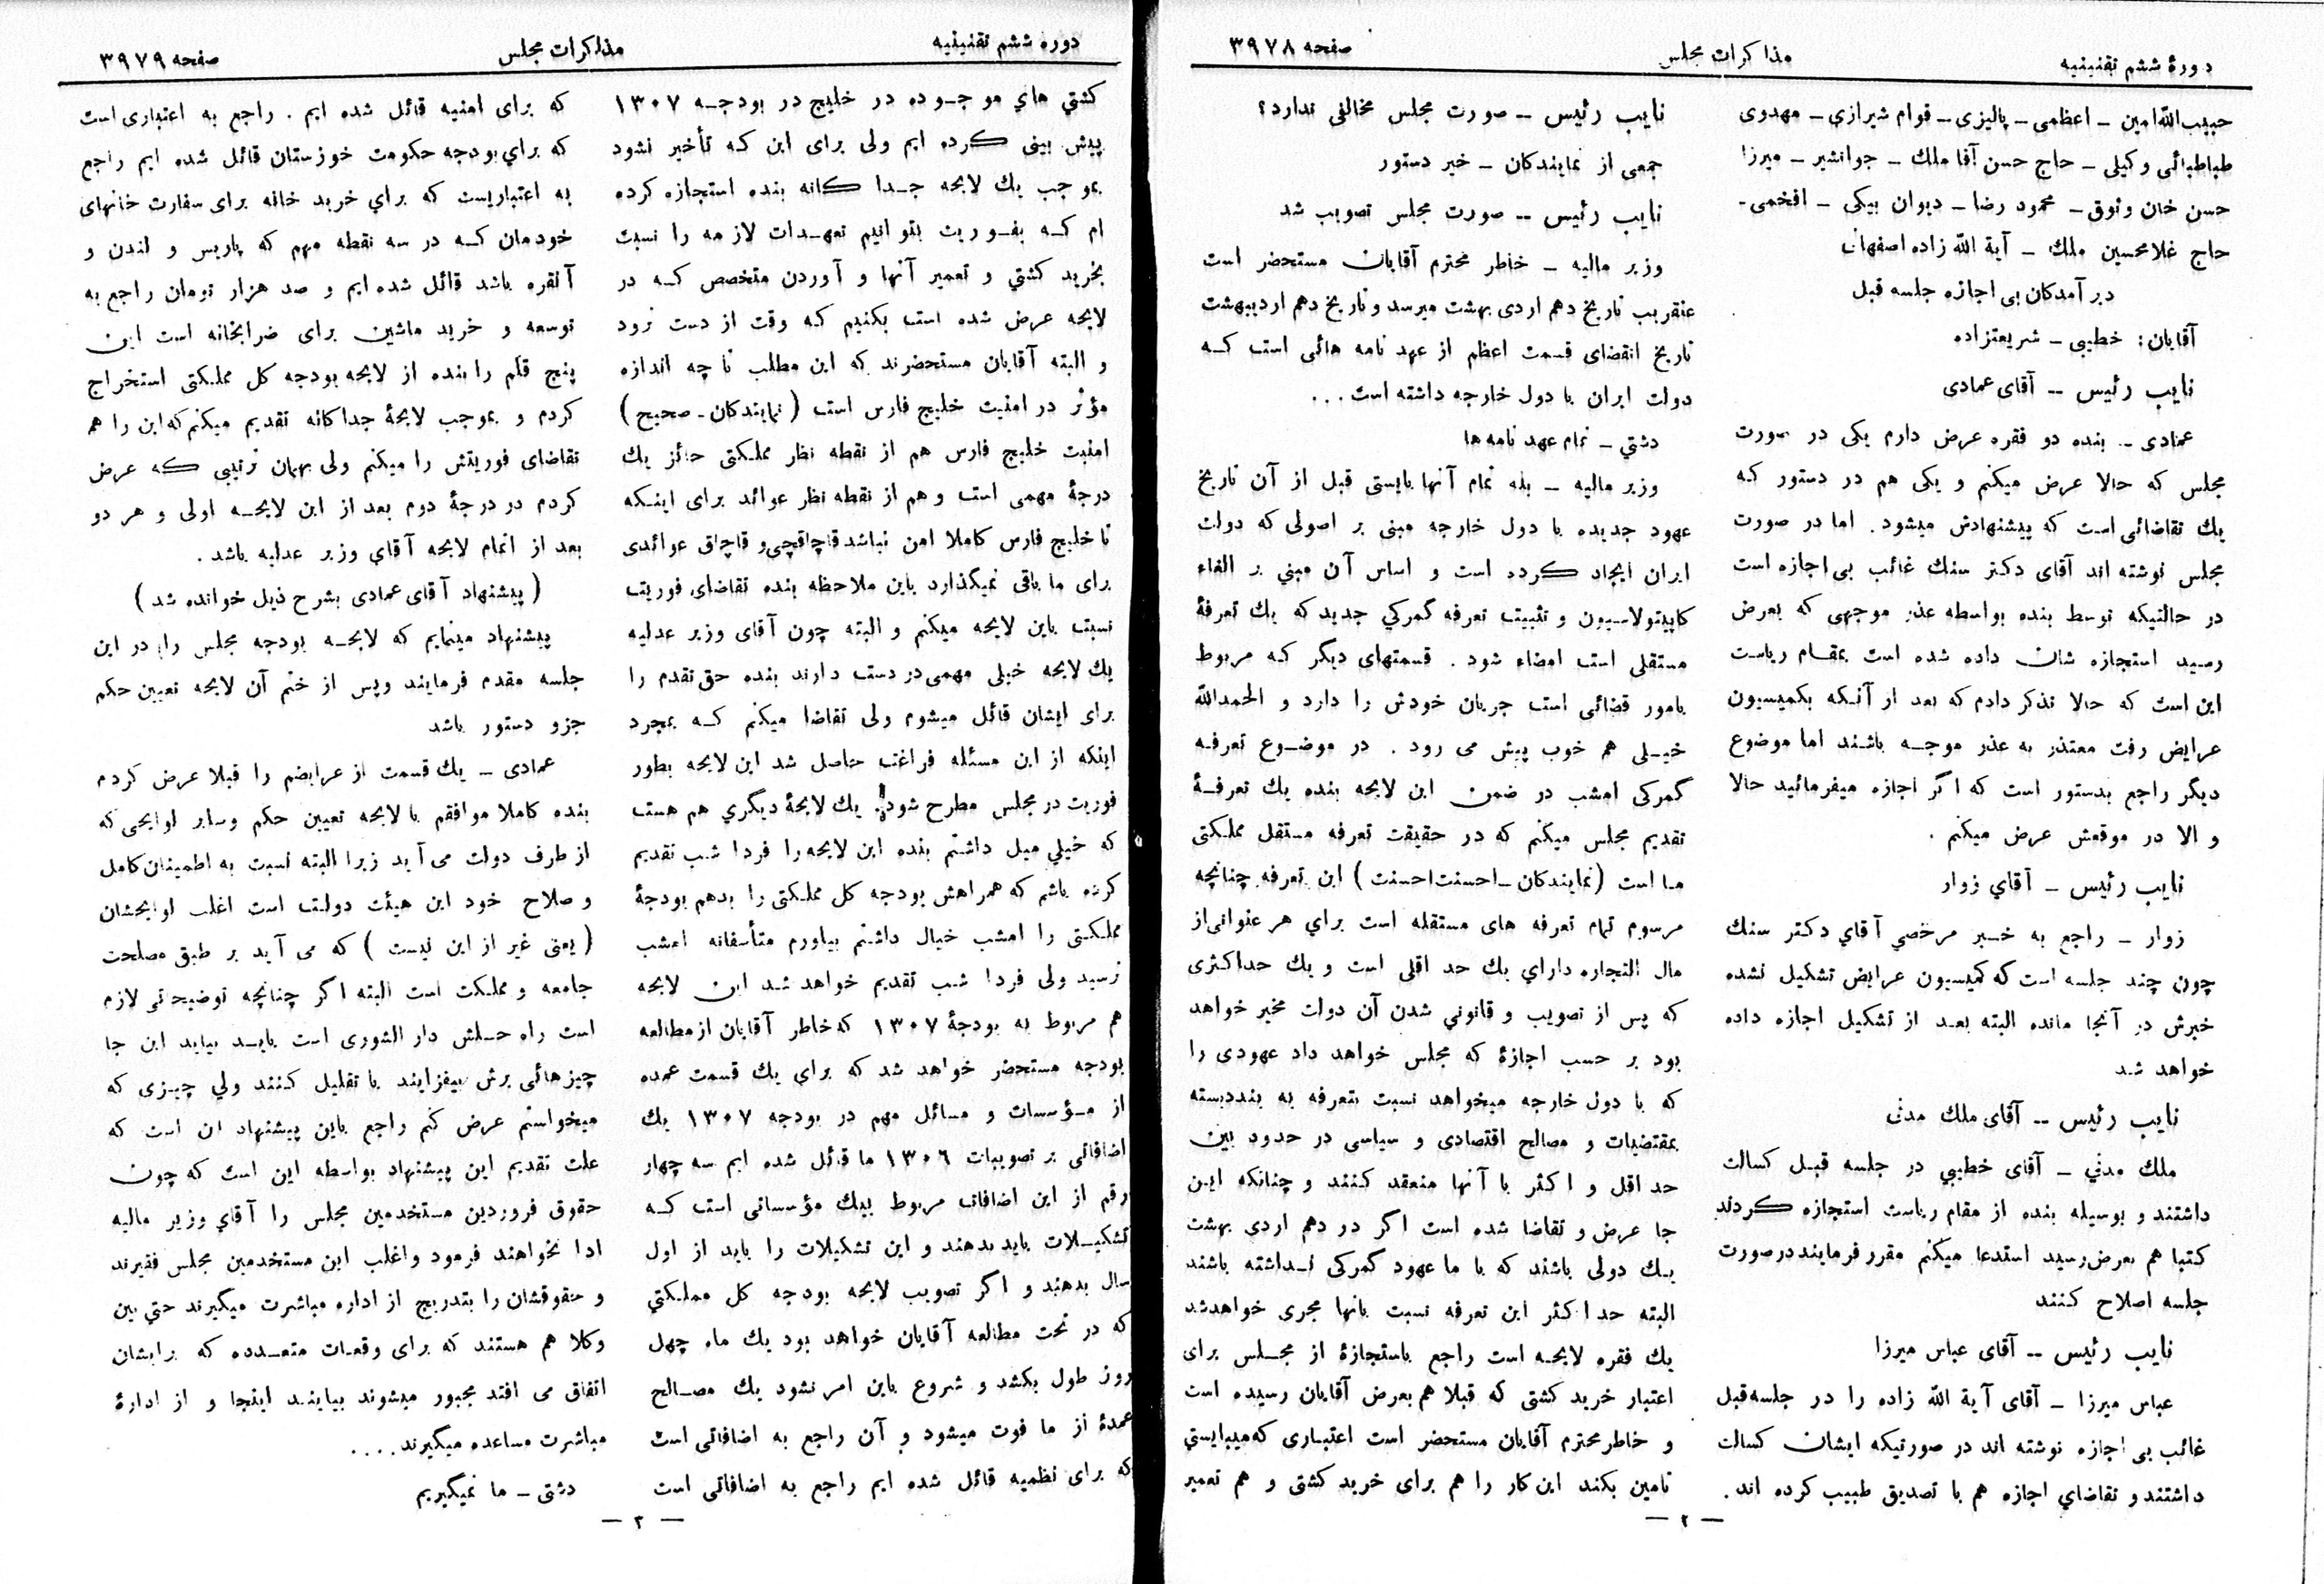 دورهٔ ششم تقنینیه
مذاکرات مجلس
صفحه ۳۹۷۸
حبیب‌الله امین ـ اعظمی ـ پالیزی ـ قوام شیرازي ـ مهدوی
طباطبائی وکیلی ـ حاج حسن آقا ملك ـ جوانشیر ـ میرزا
حسن خان وثوق ـ محمود رضا ـ دیوان بیکی ـ افخمی ـ
حاج غلامحسین ملك ـ آیة الله زاده اصفهان
دیر آمدکان بی اجازه جلسه قبل
آقایان: خطیبی ـ شریعتزاده
نایب رئیس ــ آقای عمادی
عمادی ـ بنده دو فقره عرض دارم یکی در صورت
مجلس که حالا عرض میکنم و یکی هم در دستور که
یك تقاضائی است که پیشنهادش میشود. اما در صورت
مجلس نوشته اند آقای دکتر سنك غائب بی اجازه است
در حالتیکه توسط بنده بواسطه عذر موجهی که بعرض
رسید استجازه شان داده شده است بمقام ریاست
این است که حالا تذکر دادم که بعد از آنکه بکمیسیون
عرایض رفت معتذر به عذر موجه باشند اما موضوع
دیگر راجع بدستور است که اگر اجازه میفرمائید حالا
و الا در موقعش عرض میکنم .
نایب رئیس ـ آقاي زوار
زوار ـ راجع به خبر مرخصي آقاي دکتر سنك
چون چند جلسه است که کمیسیون عرایض تشکیل نشده
خبرش در آنجا مانده البته بعد از تشکیل اجازه داده
خواهد شد
نایب رئیس ــ آقای ملك مدنی
ملك مدني ـ آقای خطیبي در جلسه قبل کسالت
داشتند و بوسیله بنده از مقام ریاست استجازه کردند
کتبا هم بعرض رسید استدعا میکنم مقرر فرمایند در صورت
جلسه اصلاح کنند
نایب رئیس ــ آقای عباس میرزا
عباس میرزا ـ آقای آیة الله زاده را در جلسه قبل
غائب بی اجازه نوشته اند در صورتیکه ایشان کسالت
داشتند و تقاضاي اجازه هم با تصدیق طبیب کرده اند.
نایب رئیس ــ صورت مجلس مخالفی ندارد؟
جمعی از نمایندکان ـ خیر دستور
نایب رئیس ــ صورت مجلس تصویب شد
وزیر مالیه ـ خاطر محترم آقایان مستحضر است
عنقریب تاریخ دهم اردی بهشت میرسد و تاریخ دهم اردیبهشت
تاریخ انقضای قسمت اعظم از عهد نامه هائی است که
دولت ایران با دول خارجه داشته است...
دشتي ـ تمام عهد نامه ها
وزیر مالیه ـ بله تمام آنها بایستی قبل از آن تاریخ
عهود جدیده با دول خارجه مبنی بر اصولی که دولت
ایران ایجاد کرده است و اساس آن مبني بر الغاء
کاپیتولاسیون و تثبیت تعرفه گمرکي جدید که یك تعرفهٔ
مستقلی است امضاء شود . قسمتهای دیگر که مربوط
بامور قضائی است جریان خودش را دارد و الحمدالله
خیلی هم خوب پیش می رود . در موضوع تعرفه
گمرکی امشب در ضمن این لایحه بنده یك تعرفهٔ
تقدیم مجلس میکنم که در حقیقت تعرفه مستقل مملکتی
ما است (نمایندکان ـ احسنت احسنت) این تعرفه چنانچه
مرسوم تمام تعرفه های مستقله است براي هر عنوانی از
مال التجاره داراي یك حد اقلی است و یك حداکثری
که پس از تصویب و قانوني شدن آن دولت مخیر خواهد
بود بر حسب اجازهٔ که مجلس خواهد داد عهودی را
که با دول خارجه میخواهد نسبت بتعرفه به بنددبسته
بمقتضیات و مصالح اقتصادی و سیاسی در حدود بین
حد اقل و اکثر با آنها منعقد کنند و چنانکه این
جا عرض و تقاضا شده است اگر در دهم اردی بهشت
یك دولی باشند که با ما عهود گمرکی نداشته باشند
البته حد اکثر این تعرفه نسبت بانها مجری خواهدشد
یك فقره لایحه است راجع باستجازهٔ از مجلس برای
اعتبار خرید کشتی که قبلا هم بعرض آقایان رسیده است
و خاطر محترم آقایان مستحضر است اعتباری که میبایستي
تامین بکند این کار را هم برای خرید کشتی و هم تعمیر
ـ ۲ ـ
دوره ششم تقنینیه
مذاکرات مجلس
صفحه ۳۹۷۹
کشتي هاي موجوده در خلیج در بودجه ۱۳۰۷
پیش بینی کرده ایم ولی برای این که تأخیر نشود
بموجب یك لایحه جدا کانه بنده استجازه کرده
ام که بفوریت بتوانیم تعهدات لازمه را نسبت
بخرید کشتي و تعمیر آنها و آوردن متخصص که در
لایحه عرض شده است بکنیم که وقت از دست نرود
و البته آقایان مستحضرند که این مطلب تا چه اندازه
مؤثر در امنیت خلیج فارس است (نمایندکان ـ صحیح)
امنیت خلیج فارس هم از نقطه نظر مملکتی حائز یك
درجهٔ مهمی است و هم از نقطه نظر عوائد برای اینکه
تا خلیج فارس کاملا امن نباشد قاچاقچی و قاچاق عوائدی
برای ما باقی نمیگذارد باین ملاحظه بنده تقاضای فوریت
نسبت باین لایحه میکنم و البته چون آقای وزیر عدلیه
یك لایحه خیلی مهمی در دست دارند بنده حق تقدم را
برای ایشان قائل میشوم ولی تقاضا میکنم که بمجرد
اینکه از این مسئله فراغت حاصل شد این لایحه بطور
فوریت در مجلس مطرح شود. یك لایحهٔ دیگري هم هست
که خیلي میل داشتم بنده این لایحه را فردا شب تقدیم
کرده باشم که همراهش بودجه کل مملکتی را بدهم بودجهٔ
مملکتی را امشب خیال داشتم بیاورم متأسفانه امشب
نرسید ولی فردا شب تقدیم خواهد شد این لایحه
هم مربوط به بودجهٔ ۱۳۰۷ که خاطر آقایان از مطالعه
بودجه مستحضر خواهد شد که براي یك قسمت عمده
از مؤسسات و مسائل مهم در بودجه ۱۳۰۷ یك
اضافاتی بر تصویبات ۱۳۰۶ ما قائل شده ایم سه چهار
رقم از این اضافات مربوط بیك مؤسساتی است که
تشکیلات باید بدهند و این تشکیلات را باید از اول
سال بدهند و اگر تصویب لایحه بودجه کل مملکتي
که در تحت مطالعه آقایان خواهد بود یك ماه چهل
روز طول بکشد و شروع باین امر نشود یك مصالح
عمدهٔ از ما فوت میشود و آن راجع به اضافاتی است
که برای نظمیه قائل شده ایم راجع به اضافاتی است
که برای امنیه قائل شده ایم . راجع به اعتباری است
که براي بودجه حکومت خوزستان قائل شده ایم راجع
به اعتباریست که براي خرید خانه برای سفارت خانهای
خودمان که در سه نقطه مهم که پاریس و لندن و
آنقره باشد قائل شده ایم و صد هزار تومان راجع به
توسعه و خرید ماشین برای ضرابخانه است این
پنج قلم را بنده از لایحه بودجه کل مملکتی استخراج
کردم و بموجب لایحهٔ جداکانه تقدیم میکنم که این را هم
تقاضای فوریتش را میکنم ولی بهمان ترتیبی که عرض
کردم در درجهٔ دوم بعد از این لایحه اولی و هر دو
بعد از اتمام لایحه آقاي وزیر عدلیه باشد .
( پیشنهاد آقای عمادی بشرح ذیل خوانده شد )
پیشنهاد مینمایم که لایحه بودجه مجلس را در این
جلسه مقدم فرمایند و پس از ختم آن لایحه تعیین حکم
جزو دستور باشد
عمادی ـ یك قسمت از عرایضم را قبلا عرض کردم
بنده کاملا موافقم با لایحه تعیین حکم و سایر لوایحی که
از طرف دولت می آید زیرا البته نسبت به اطمینان کامل
و صلاح خود این هیئت دولت است اغلب لوایحشان
( یعنی غیر از این نیست ) که می آید بر طبق مصلحت
جامعه و مملکت است البته اگر چنانچه توضیحاتی لازم
است راه حلش دار الشوری است باید بیاید این جا
چیزهائی برش بیفزایند یا تقلیل کنند ولي چیزی که
میخواستم عرض کنم راجع باین پیشنهاد ان است که
علت تقدیم این پیشنهاد بواسطه این است که چون
حقوق فروردین مستخدمین مجلس را آقاي وزیر مالیه
ادا نخواهند فرمود و اغلب این مستخدمین مجلس فقیرند
و حقوقشان را بتدریج از اداره مباشرت میگیرند حتي بین
وکلا هم هستند که برای وقعات متعدده که برایشان
اتفاق می افتد مجبور میشوند بیایند اینجا و از ادارهٔ
مباشرت مساعده میگیرند....
دشتی ـ ما نمیگیریم
ـ ۳ ـ